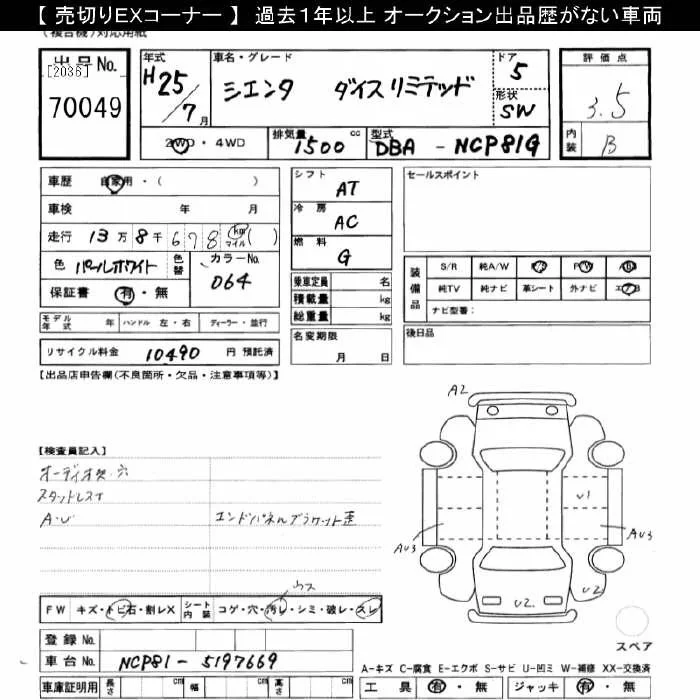 【 売切りEXコーナー 】 過去1年以上 オークション出品歴がない車両
(複合機)対応用紙
出品No. [2036] 70049
年式 H25/7月
車名・グレード シエンタ ダイスリミテッド
ドア 5
形状 SW
評価点 3.5
内装 B
2WD・4WD
排気量 1500 cc
型式 DBA - NCP81G
車歴 自家用・( )
車検 年 月
走行 13万8千678 km マイル ( )
色 パールホワイト 色替
カラーNo. 064
保証書 有・無
シフト AT
冷房 AC
燃料 G
乗車定員 名
積載量 kg
総重量 kg
セールスポイント
装備品
S/R 純A/W P/S P/W
純TV 純ナビ 革シート 外ナビ エアB
ナビ型番:
モデル年式 年 ハンドル 左・右 ディーラー・並行
名変期限 月 日
後日品
リサイクル料金 10490 円 預託済
【出品店申告欄(不良箇所・欠品・注意事項等)】
A2
【検査員記入】
オーディオ欠 穴
スタットレス
A・U
エンドパネルブラケット歪
U1
AU3
AU3
U2
U2
ウス
FW キズ・トビ石・割レX
シート内装 コゲ・穴・汚レ・シミ・破レ・スレ
スペア
登録No.
車台No. NCP81 - 5197669
A-キズ C-腐食 E-エクボ S-サビ U-凹ミ W-補修 XX-交換済
車庫証明用 長さ cm 幅 cm 高さ cm
工具 有・無 ジャッキ 有・無